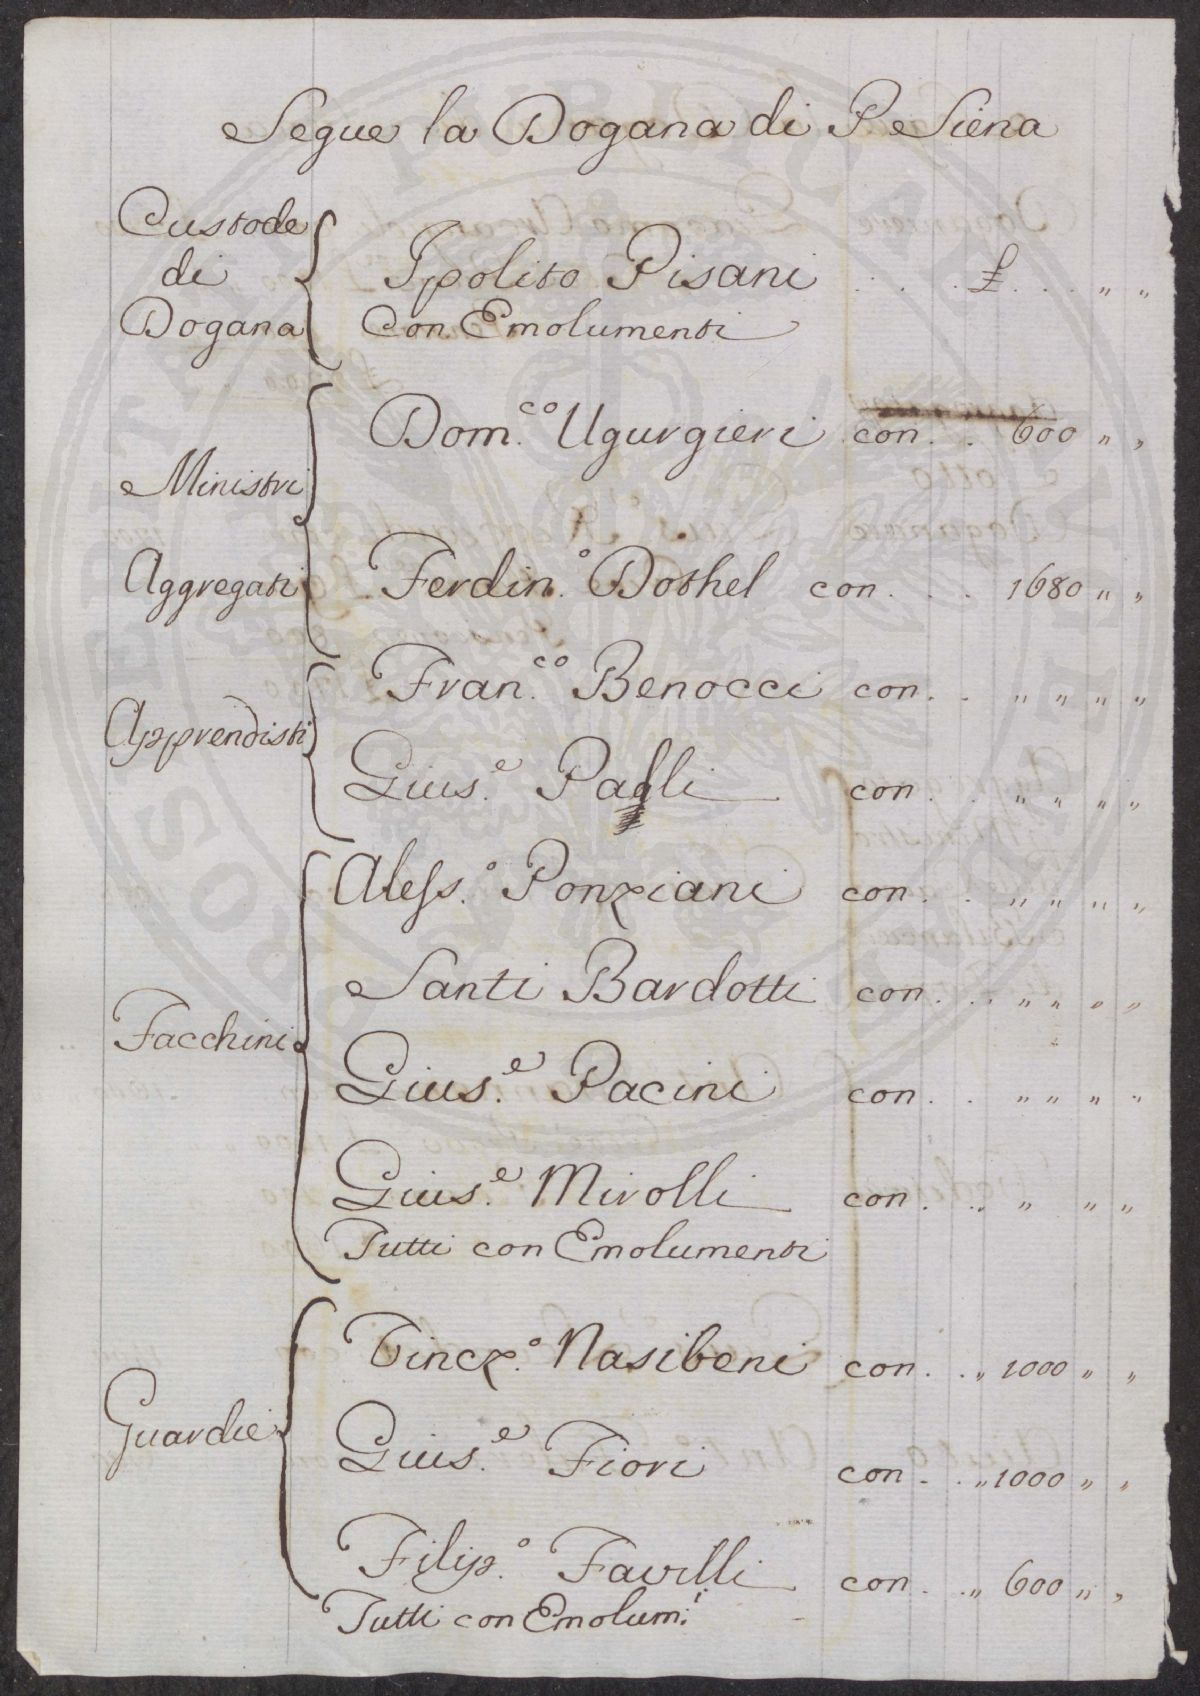 Segue la Dogana di Siena
Custode
di
Dogana
Ipolito Pisani . . . £ . . . " "
Con Emolumenti
Ministri
Aggregati
Dom.co Ugurgieri con . . 600 " "
Ferdin.o Dothel con . . . 1680 " "
Apprendisti
Fran.co Benocci con . . " " " "
Gius.e Pagli con . . " " " "
Facchini
Aless.o Ponziani con . . " " " "
Santi Bardotti con . . " " " "
Gius.e Pacini con . . " " " "
Gius.e Mirolli con . . " " "
Tutti con Emolumenti
Guardie
Vincz.o Nasibeni con . . " 1000 " "
Gius.e Fiori con . . " 1000 " "
Filip.o Favilli con . . " 600 " "
Tutti con Emolum.i